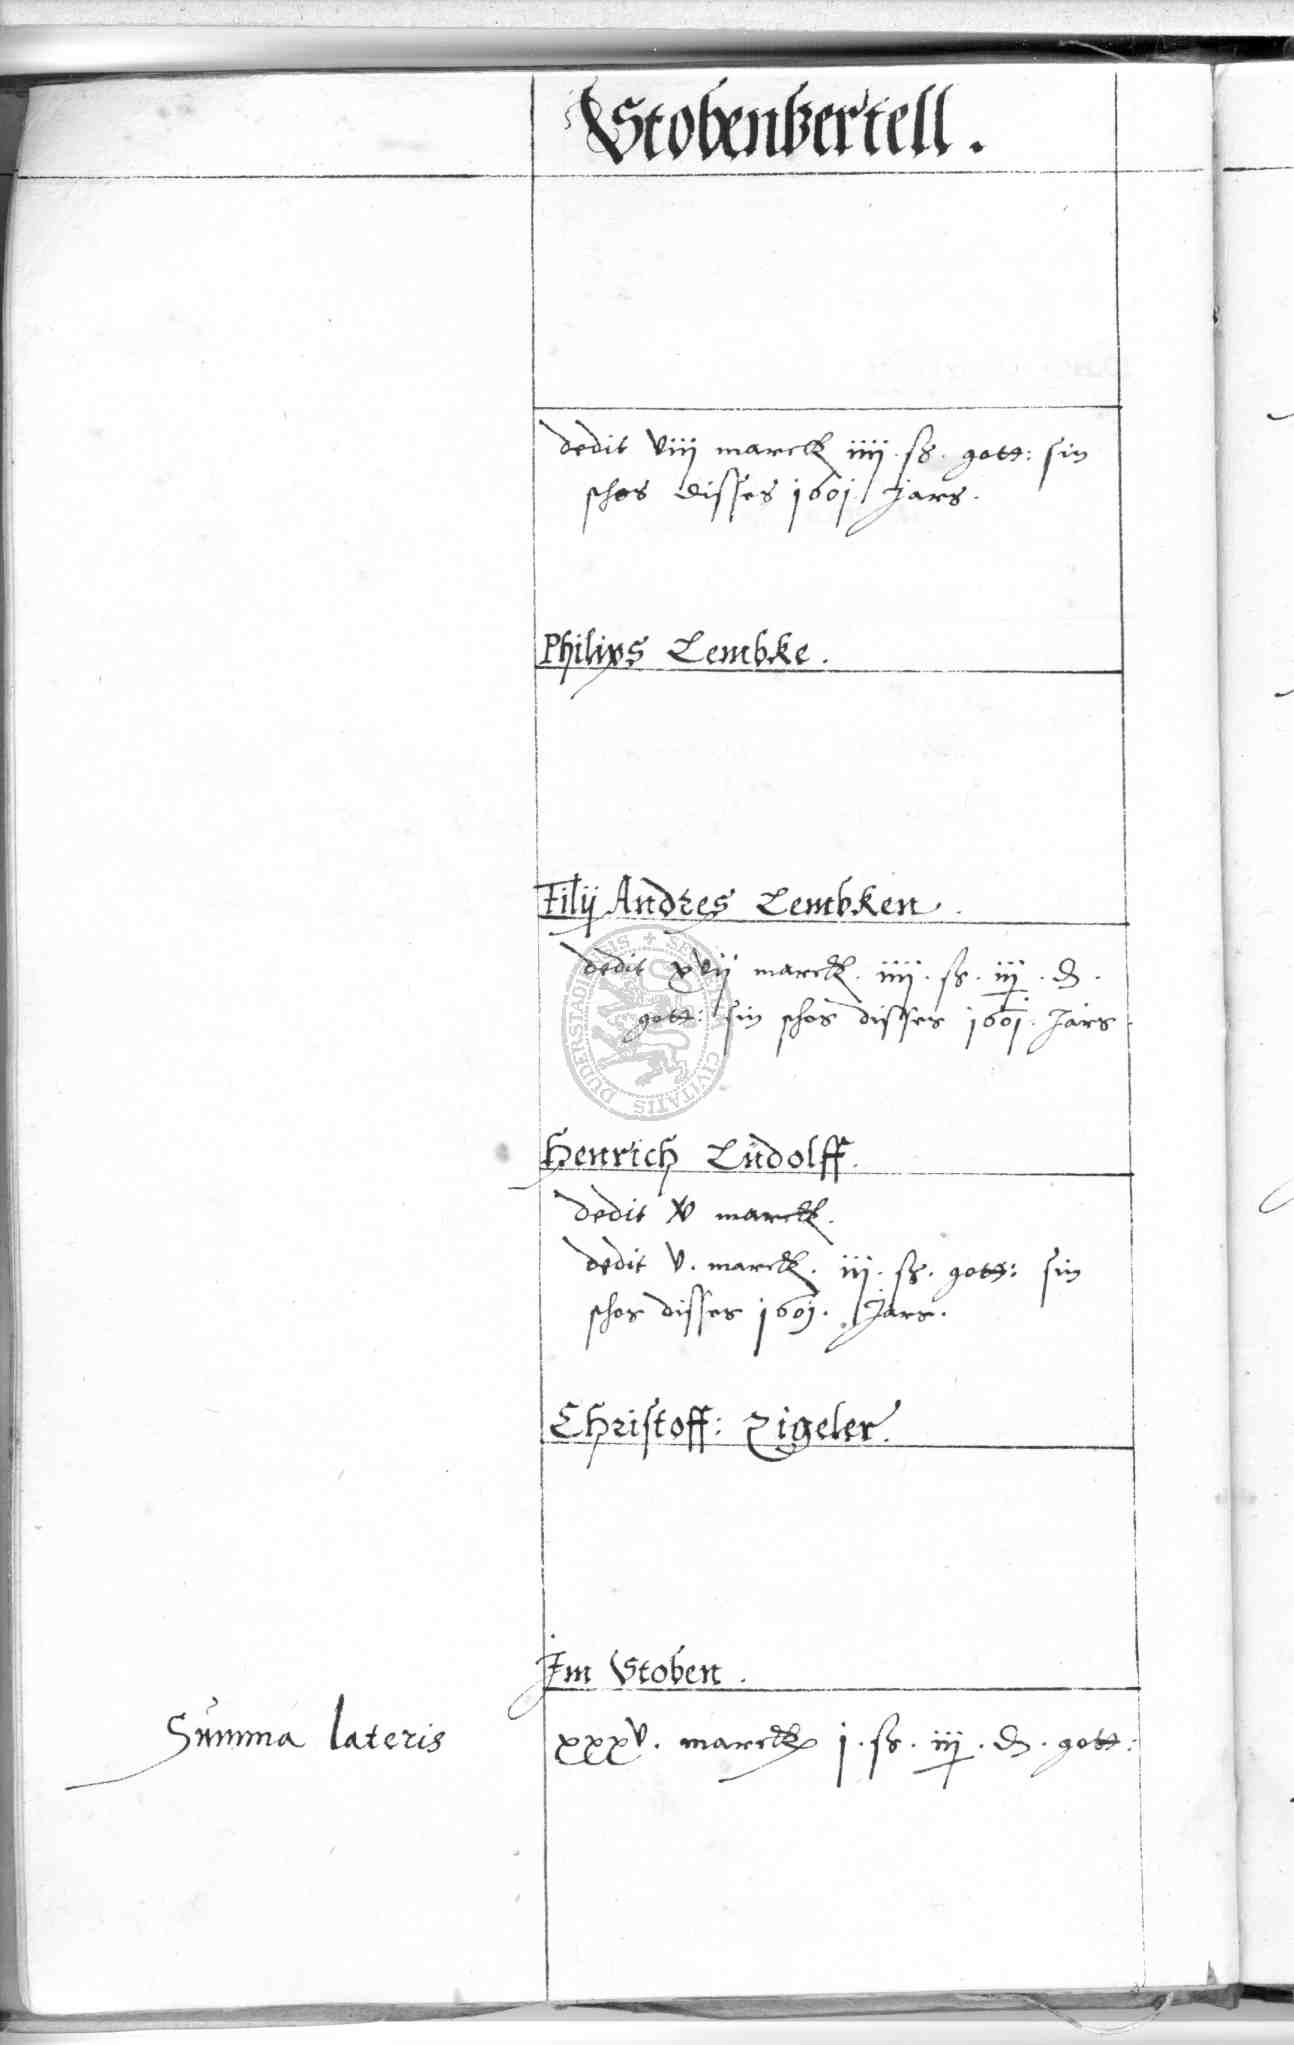 Stobenvertell.
dedit viij marck iiij. ß. gott: sin
schos disses 1601. Jars.
Philips Lembke.
Filij Andres Lembken.
dedit xvij marck. iiij. ß. iij. d.
gott: sin schos disses 1601. Jars
Henrich Ludolff.
dedit v marck.
dedit v. marck. iij. ß. gott: sin
schos disses 1601. Jars.
Christoff: Zigeler.
Im Stoben.
Summa lateris xxxv. marck j. ß. iij. d. gott:
DUDERSTADIENSIS CIVITATIS